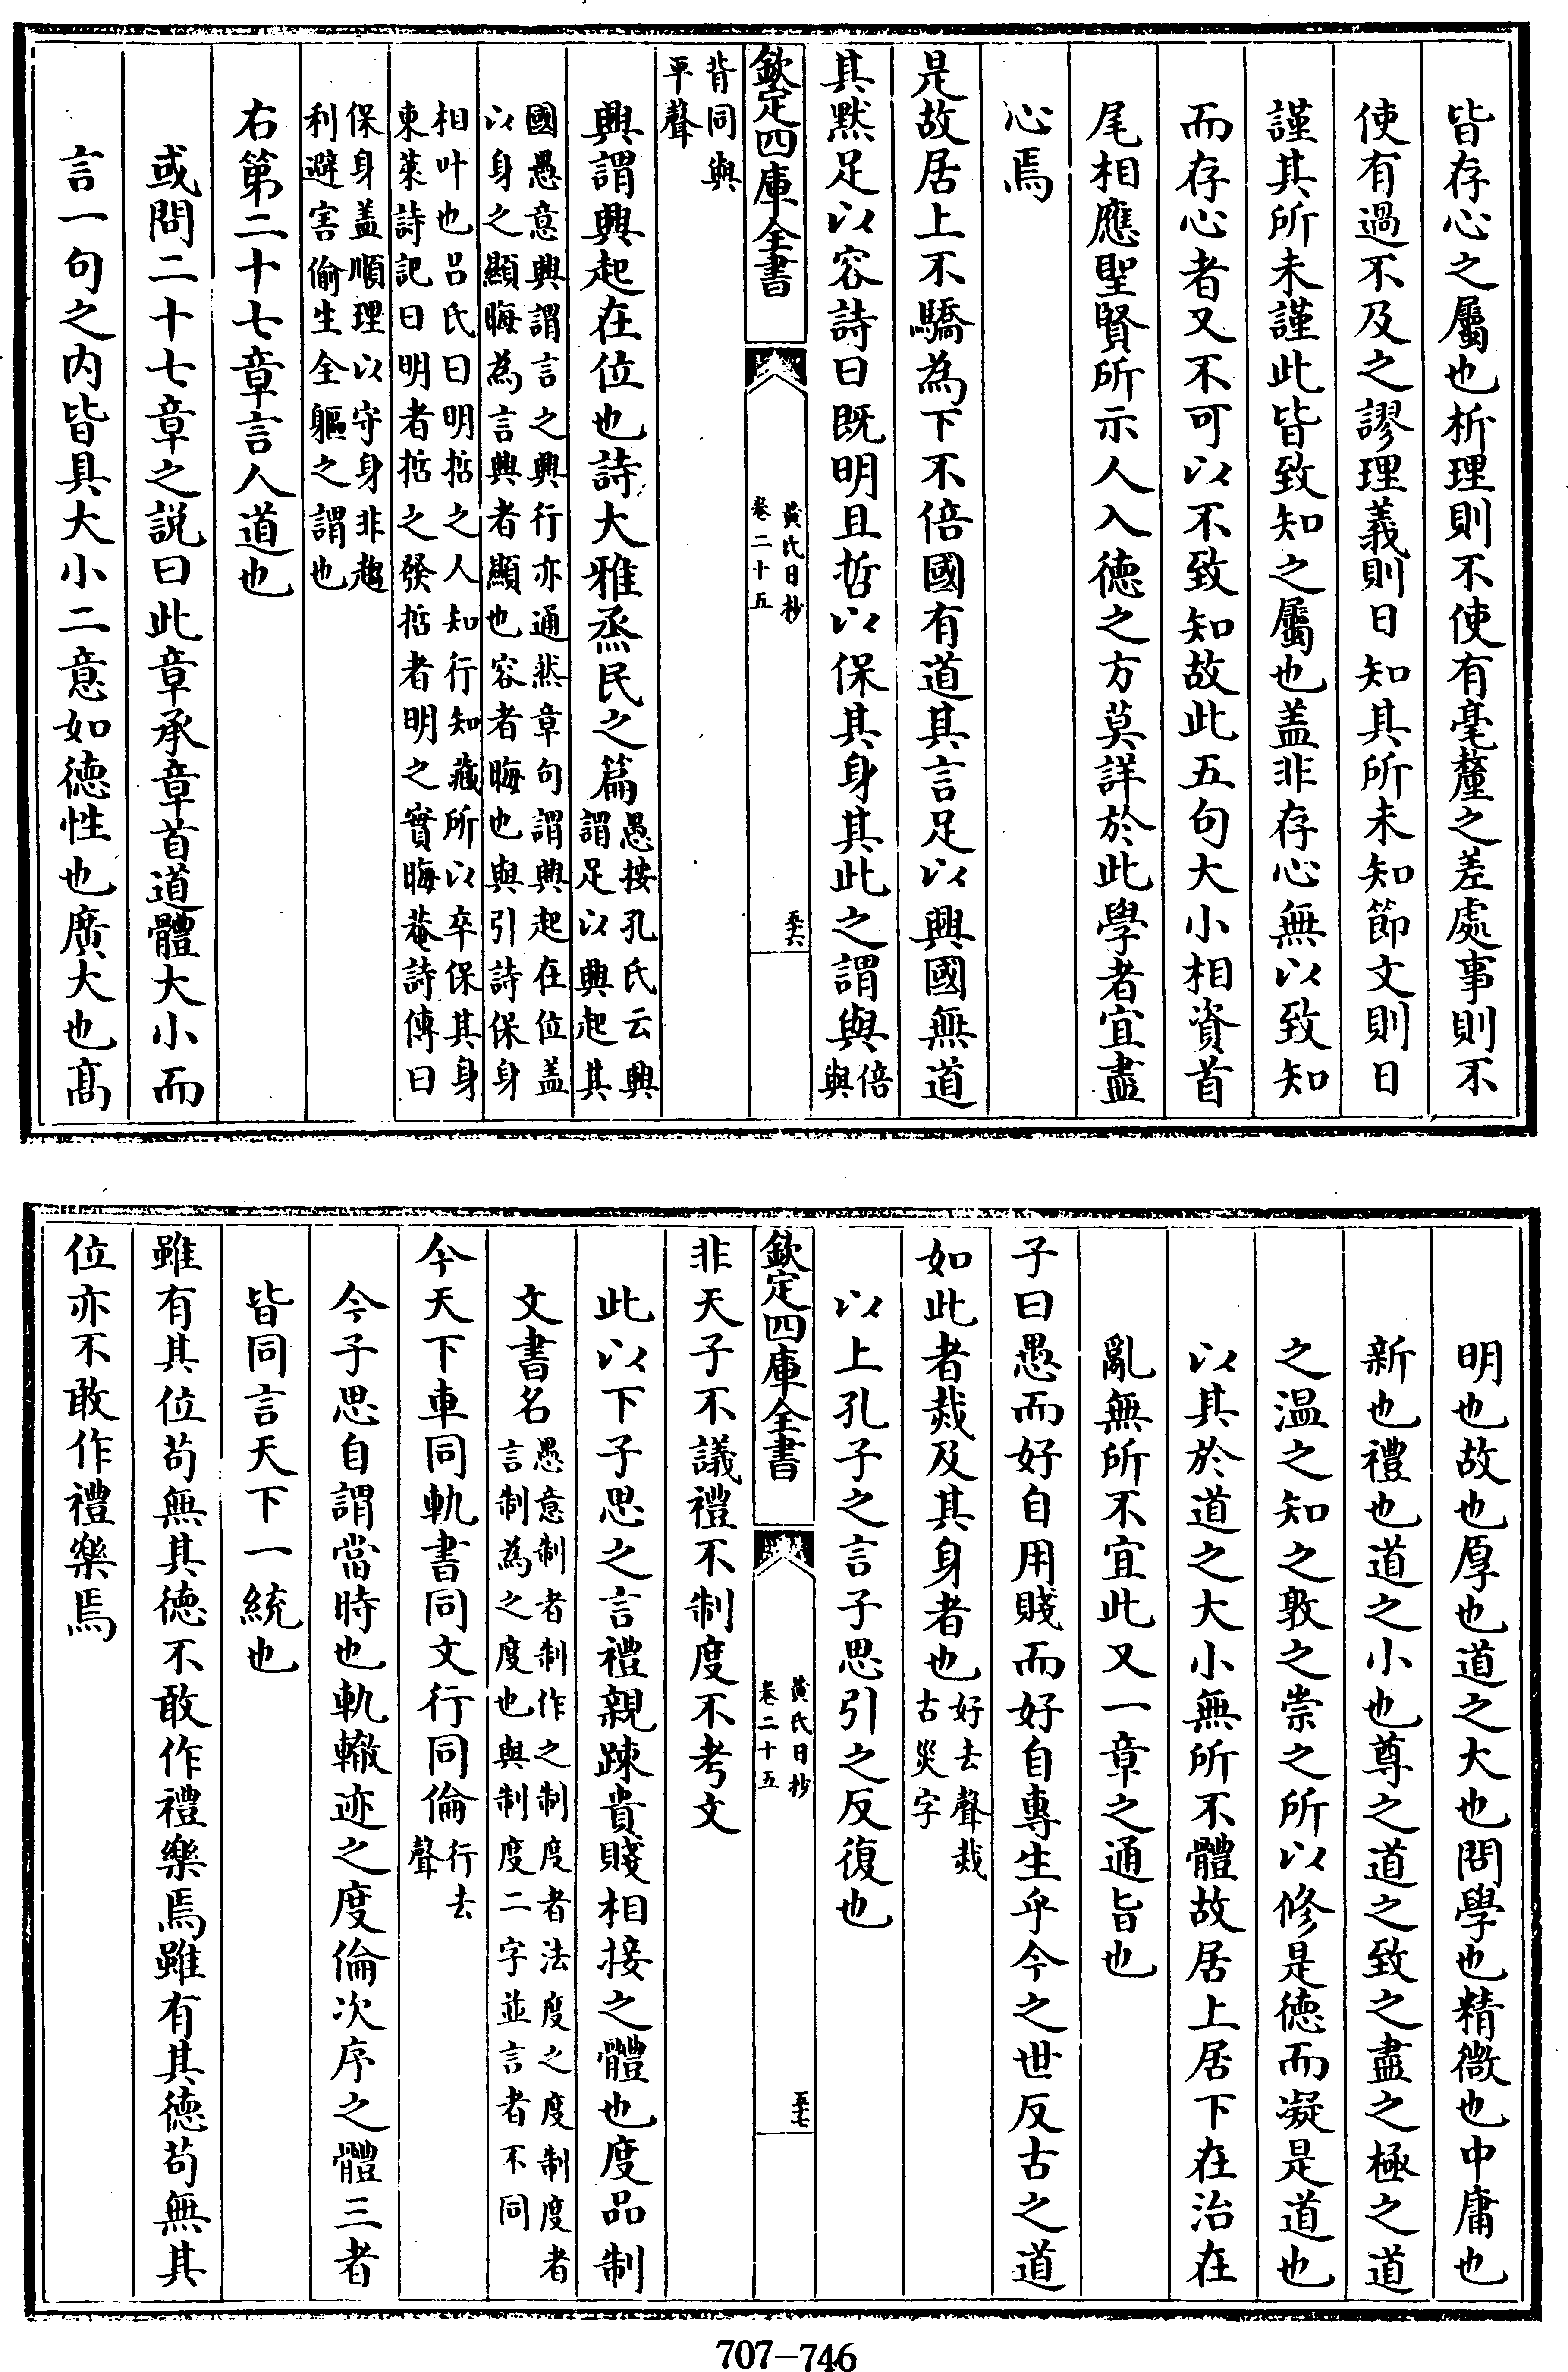 皆存心之屬也析理則不使有毫釐之差處事則不
使有過不及之謬理義則日知其所未知節文則日
謹其所未謹此皆致知之屬也盖非存心無以致知
而存心者又不可以不致知故此五句大小相資首
尾相應聖賢所示人入德之方莫詳於此學者宜盡
心焉
是故居上不驕為下不倍國有道其言足以興國無道
其黙足以容詩曰既明且哲以保其身其此之謂與倍
與
欽定四庫全書
黄氏日抄
卷二十五
五十六
背同與
平聲
興謂興起在位也詩大雅烝民之篇愚按孔氏云興
謂足以興起其
國愚意興謂言之興行亦通然章句謂興起在位盖
以身之顯晦為言興者顯也容者晦也與引詩保身
相叶也吕氏曰明哲之人知行知藏所以卒保其身
東萊詩記曰明者哲之發哲者明之實晦菴詩傳曰
保身盖順理以守身非趨
利避害偷生全軀之謂也
右第二十七章言人道也
或問二十七章之説曰此章承章首道體大小而
言一句之内皆具大小二意如德性也廣大也髙
明也故也厚也道之大也問學也精微也中庸也
新也禮也道之小也尊之道之致之盡之極之道
之温之知之敦之崇之所以修是德而凝是道也
以其於道之大小無所不體故居上居下在治在
亂無所不宜此又一章之通旨也
子曰愚而好自用賤而好自專生乎今之世反古之道
如此者烖及其身者也好去聲烖
古災字
以上孔子之言子思引之反復也
欽定四庫全書
黄氏日抄
卷二十五
五十七
非天子不議禮不制度不考文
此以下子思之言禮親踈貴賤相接之體也度品制
文書名愚意制者制作之制度者法度之度制度者
言制為之度也與制度二字並言者不同
今天下車同軌書同文行同倫行去
聲
今子思自謂當時也軌轍迹之度倫次序之體三者
皆同言天下一統也
雖有其位茍無其德不敢作禮樂焉雖有其德茍無其
位亦不敢作禮樂焉
707-746